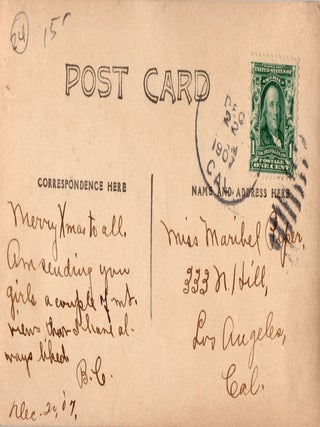 24 15¢
POST CARD
UNITED STATES OF AMERICA
FRANKLIN
POSTAGE
ONE CENT
DEC
1907
CAL
CORRESPONDENCE HERE
NAME AND ADDRESS HERE
Merry Xmas to all.
Am sending you
girls a couple of mt.
views that I have al-
ways liked.
B.C.
Dec. 21, 07,
Miss Maribel Piper,
333 N/Hill,
Los Angeles,
Cal.